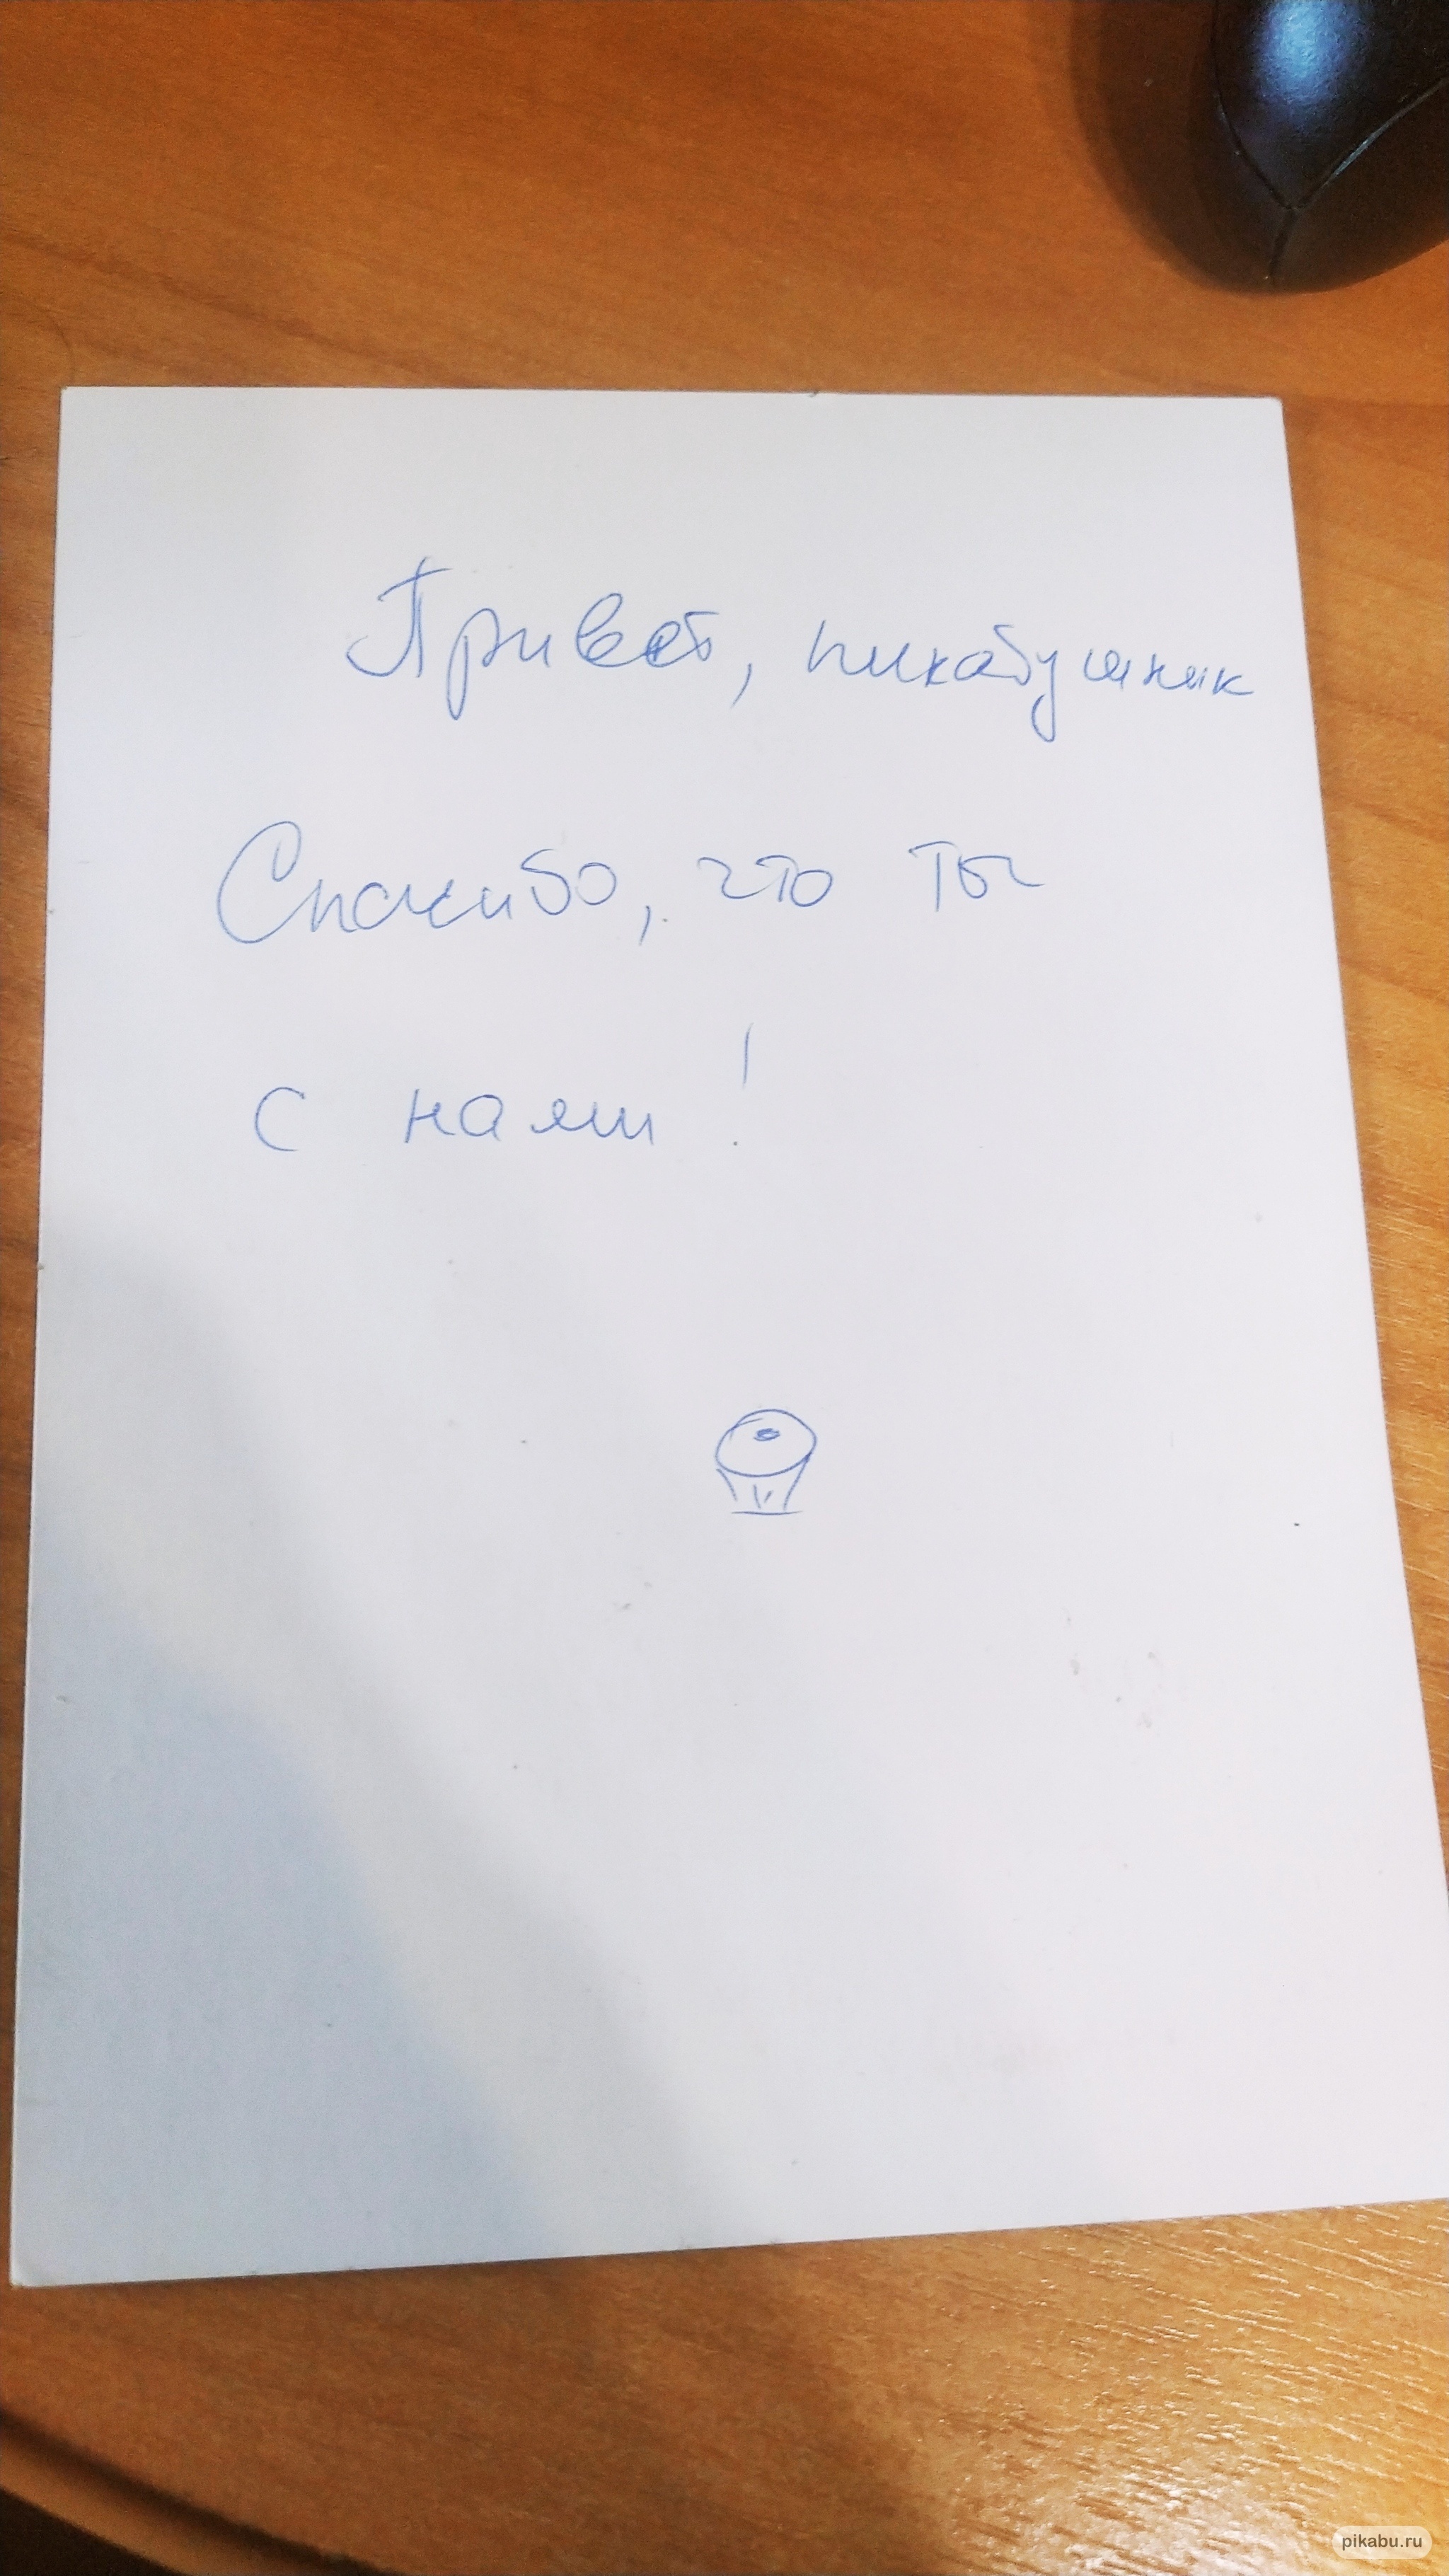 Привет, пикабушник
Спасибо, что ты
с нами!
pikabu.ru